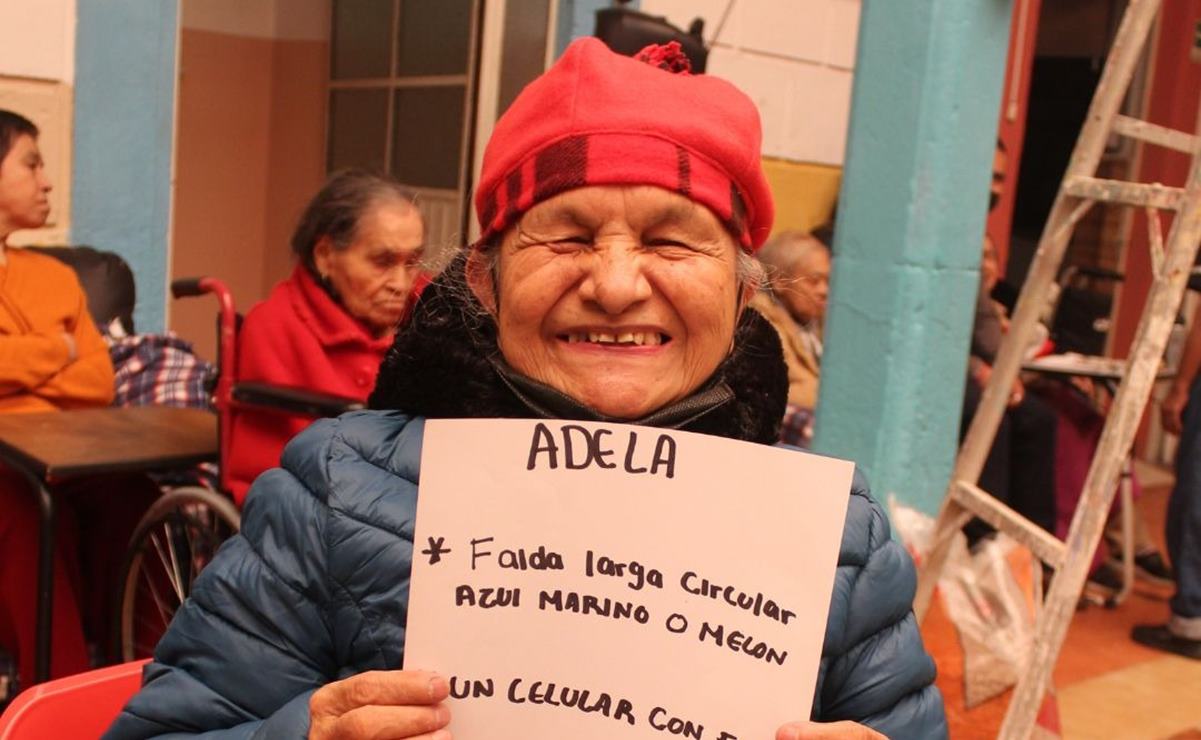 ADELA
* Falda larga circular
AZUl MARINO O MELON
UN CELULAR CON